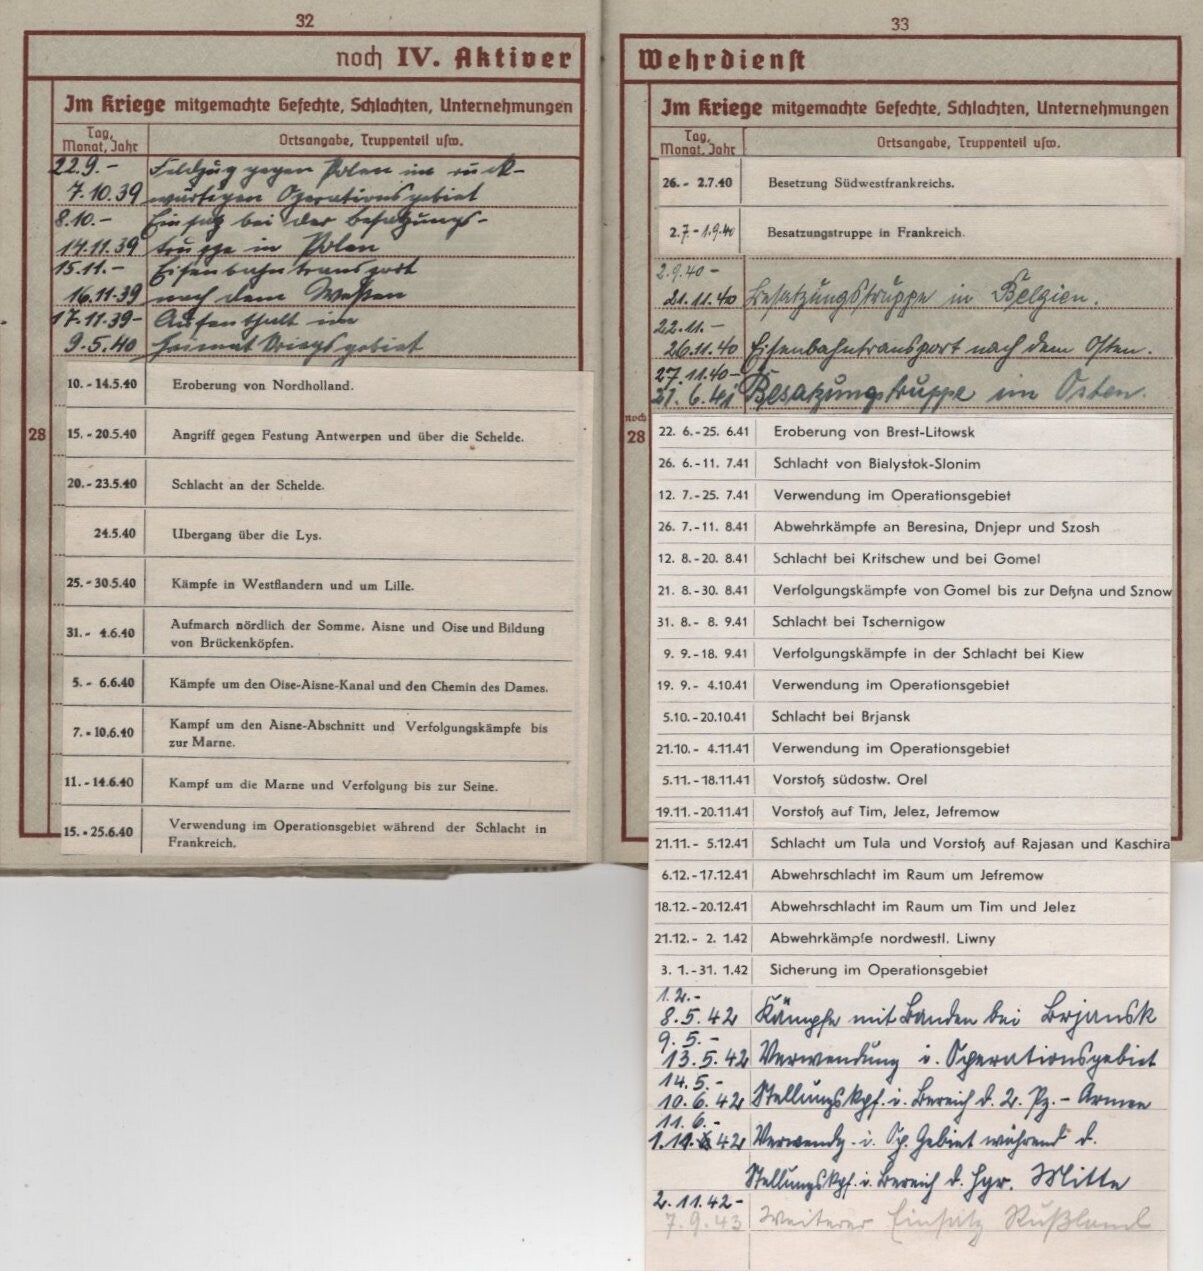 32
noch IV. Aktiver
Im Kriege mitgemachte Gefechte, Schlachten, Unternehmungen
Tag, Monat, Jahr
Ortsangabe, Truppenteil usw.
22.9.- Feldzug gegen Polen im rück-
7.10.39 wärtigen Operationsgebiet
8.10.- Einsatz bei der Besatzungs-
14.11.39 truppe in Polen
15.11.- Eisenbahntransport
16.11.39 nach dem Westen
17.11.39- Aufenthalt im
9.5.40 Heimatkriegsgebiet
28
10. - 14.5.40 Eroberung von Nordholland.
15. - 20.5.40 Angriff gegen Festung Antwerpen und über die Schelde.
20. - 23.5.40 Schlacht an der Schelde.
24.5.40 Ubergang über die Lys.
25. - 30.5.40 Kämpfe in Westflandern und um Lille.
31. - 4.6.40 Aufmarch nördlich der Somme, Aisne und Oise und Bildung
von Brückenköpfen.
5. - 6.6.40 Kämpfe um den Oise-Aisne-Kanal und den Chemin des Dames.
7. - 10.6.40 Kampf um den Aisne-Abschnitt und Verfolgungskämpfe bis
zur Marne.
11. - 14.6.40 Kampf um die Marne und Verfolgung bis zur Seine.
15. - 25.6.40 Verwendung im Operationsgebiet während der Schlacht in
Frankreich.
33
Wehrdienst
Im Kriege mitgemachte Gefechte, Schlachten, Unternehmungen
Tag, Monat, Jahr
Ortsangabe, Truppenteil usw.
26. - 2.7.40 Besetzung Südwestfrankreichs.
2.7 - 1.9.40 Besatzungstruppe in Frankreich.
2.9.40 -
21.11.40 Besatzungstruppe in Belgien.
22.11.-
26.11.40 Eisenbahntransport nach dem Osten.
27.11.40-
21.6.41 Besatzungstruppe im Osten.
noch
28
22. 6. - 25. 6.41 Eroberung von Brest-Litowsk
26. 6. - 11. 7.41 Schlacht von Bialystok-Slonim
12. 7. - 25. 7.41 Verwendung im Operationsgebiet
26. 7. - 11. 8.41 Abwehrkämpfe an Beresina, Dnjepr und Szosh
12. 8. - 20. 8.41 Schlacht bei Kritschew und bei Gomel
21. 8. - 30. 8.41 Verfolgungskämpfe von Gomel bis zur Deßna und Sznow
31. 8. - 8. 9.41 Schlacht bei Tschernigow
9. 9. - 18. 9.41 Verfolgungskämpfe in der Schlacht bei Kiew
19. 9. - 4.10.41 Verwendung im Operationsgebiet
5.10. - 20.10.41 Schlacht bei Brjansk
21.10. - 4.11.41 Verwendung im Operationsgebiet
5.11. - 18.11.41 Vorstoß südostw. Orel
19.11. - 20.11.41 Vorstoß auf Tim, Jelez, Jefremow
21.11. - 5.12.41 Schlacht um Tula und Vorstoß auf Rajasan und Kaschira
6.12. - 17.12.41 Abwehrschlacht im Raum um Jefremow
18.12. - 20.12.41 Abwehrschlacht im Raum um Tim und Jelez
21.12. - 2. 1.42 Abwehrkämpfe nordwestl. Liwny
3. 1. - 31. 1.42 Sicherung im Operationsgebiet
1.2.-
8.5.42 Kämpfe mit Banden bei Brjansk
9.5.-
13.5.42 Verwendung i. Operationsgebiet
14.5.-
10.6.42 Stellungskpf. i. Bereich d. 2. Pz.- Armee
11.6.-
1.11.42 Verwendg. i. Op. Gebiet während d.
Stellungskpf. i. Bereich d. Hgr. Mitte
2.11.42-
7.9.43 Weiterer Einsatz Rußland